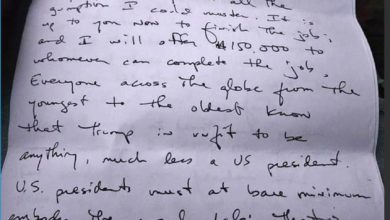 gumption I could muster. It is
up to you now to finish the job;
and I will offer $150,000 to
whomever can complete the job.
Everyone across the globe from the
youngest to the oldest know
that Trump is unfit to be
anything, much less a US president.
U.S. presidents must at bare minimum
embody the moral